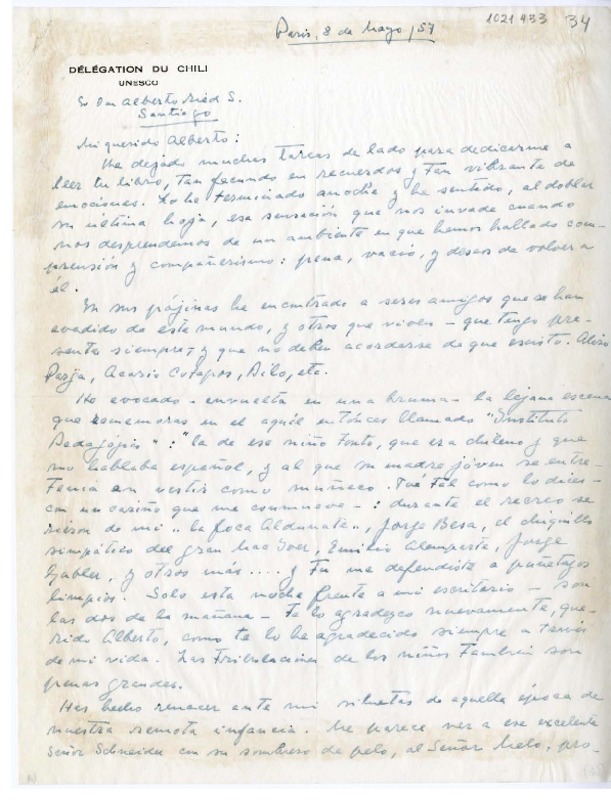 1021433 34
Paris, 8 de Mayo, 57
DÉLÉGATION DU CHILI
UNESCO
Sr Don Alberto Ried S.
Santiago
Mi querido Alberto:
He dejado muchas tareas de lado para dedicarme a
leer tu libro, tan fecundo en recuerdos y tan vibrante de
emociones. Lo he terminado anoche y he sentido, al doblar
su última hoja, esa sensación que nos invade cuando
nos desprendemos de un ambiente en que hemos hallado com-
prensión y compañerismo: pena, vacío, y deseos de volver a
él.
En sus pájinas he encontrado a seres amigos que se han
evadido de este mundo, y otros que viven - que tengo pre-
sentes siempre, y que no deben acordarse de que existo.
Parga, Acario Cotapos, etc.
He evocado - envuelta en una bruma - la lejana escena
que rememoras en el aquél entónces llamado "Instituto
Pedagójico": "la de ese niño tonto, que era chileno y que
no hablaba español, y al que su madre jóven se entre-
tenía en vestir como muñeco. Fué tal como lo dices -
con un cariño que me conmueve - : durante el recreo se
rieron de mi "la foca Aldunate", Jorge Besa, el chiquillo
simpático del gran Mac Iver, Emilio Jorge
y otros más.... y tú me defendiste a puñetazos
limpios. Solo esta noche frente a mi escritorio - son
las dos de la mañana - te lo agradezco nuevamente, que-
rido Alberto, como te lo he agradecido siempre a través
de mi vida. Las tribulaciones de los niños también son
penas grandes.
Has hecho renacer ante mi siluetas de aquella época de
nuestra remota infancia. Me parece ver a ese excelente
Señor Schneider con su sombrero de pelo, al Señor Melo, pro-